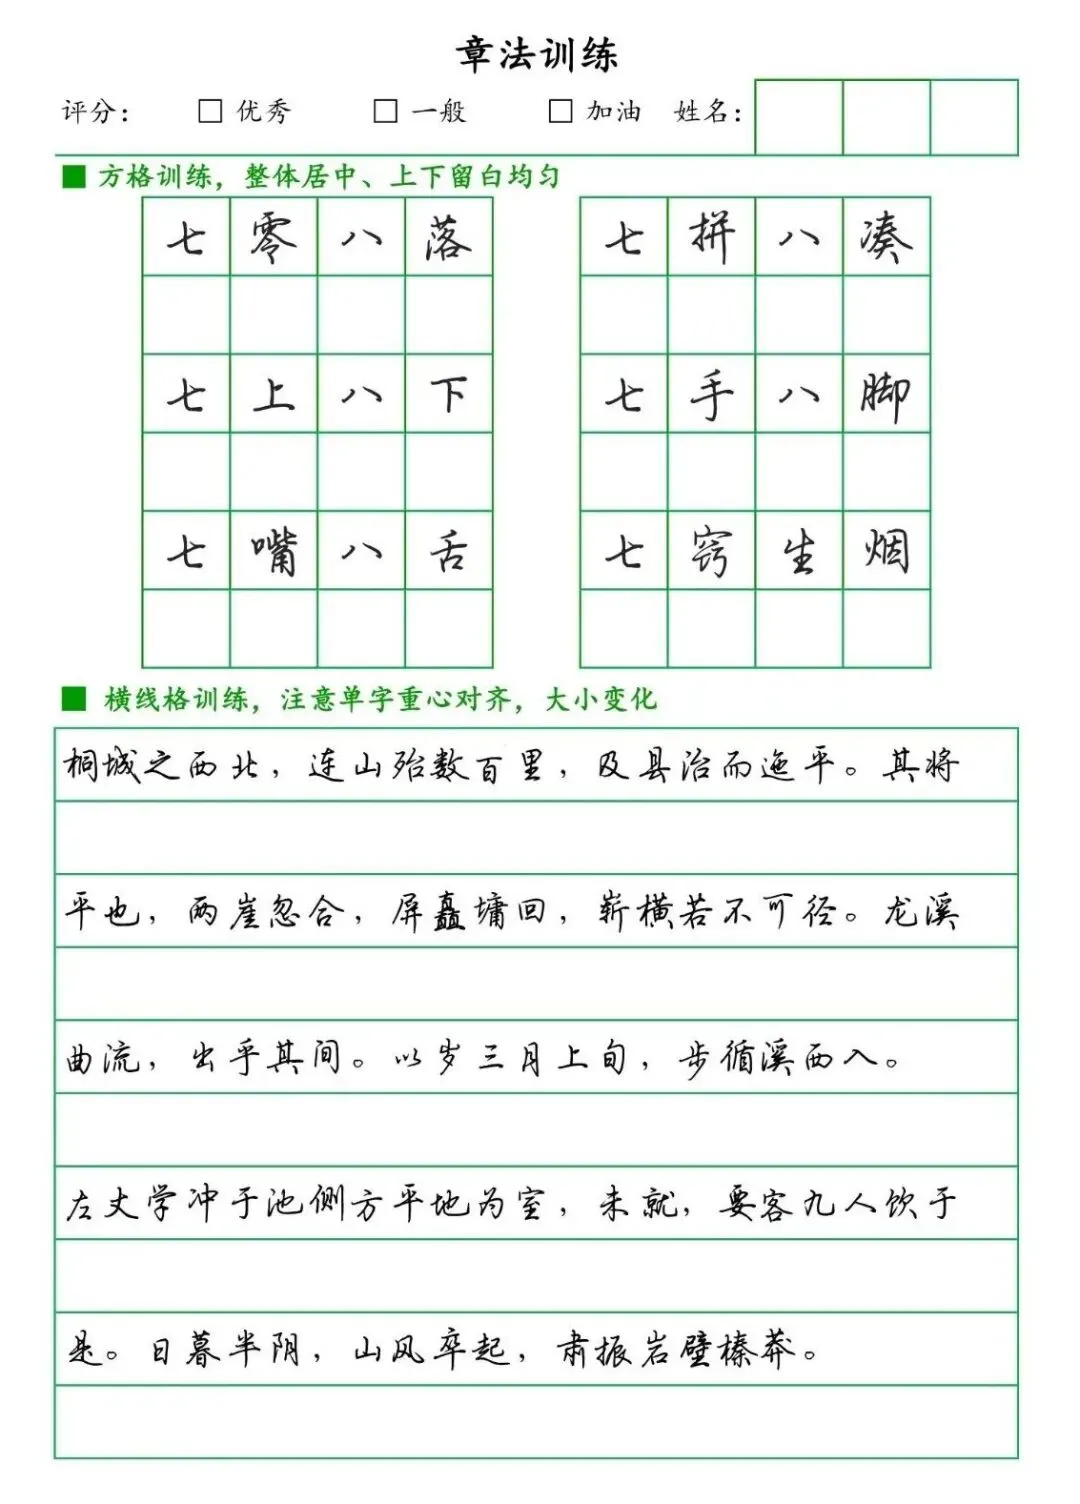 章法训练
评分： □ 优秀 □ 一般 □ 加油 姓名：
■ 方格训练，整体居中、上下留白均匀
七零八落 七拼八凑
七上八下 七手八脚
七嘴八舌 七窍生烟
■ 横线格训练，注意单字重心对齐，大小变化
桐城之西北，连山殆数百里，及县治而迤平。其将
平也，两崖忽合，屏矗墉回，崭横若不可径。龙溪
曲流，出乎其间。以岁三月上旬，步循溪西入。
左丈学冲于池侧方平地为室，未就，要客九人饮于
是。日暮半阴，山风卒起，肃振岩壁榛莽。